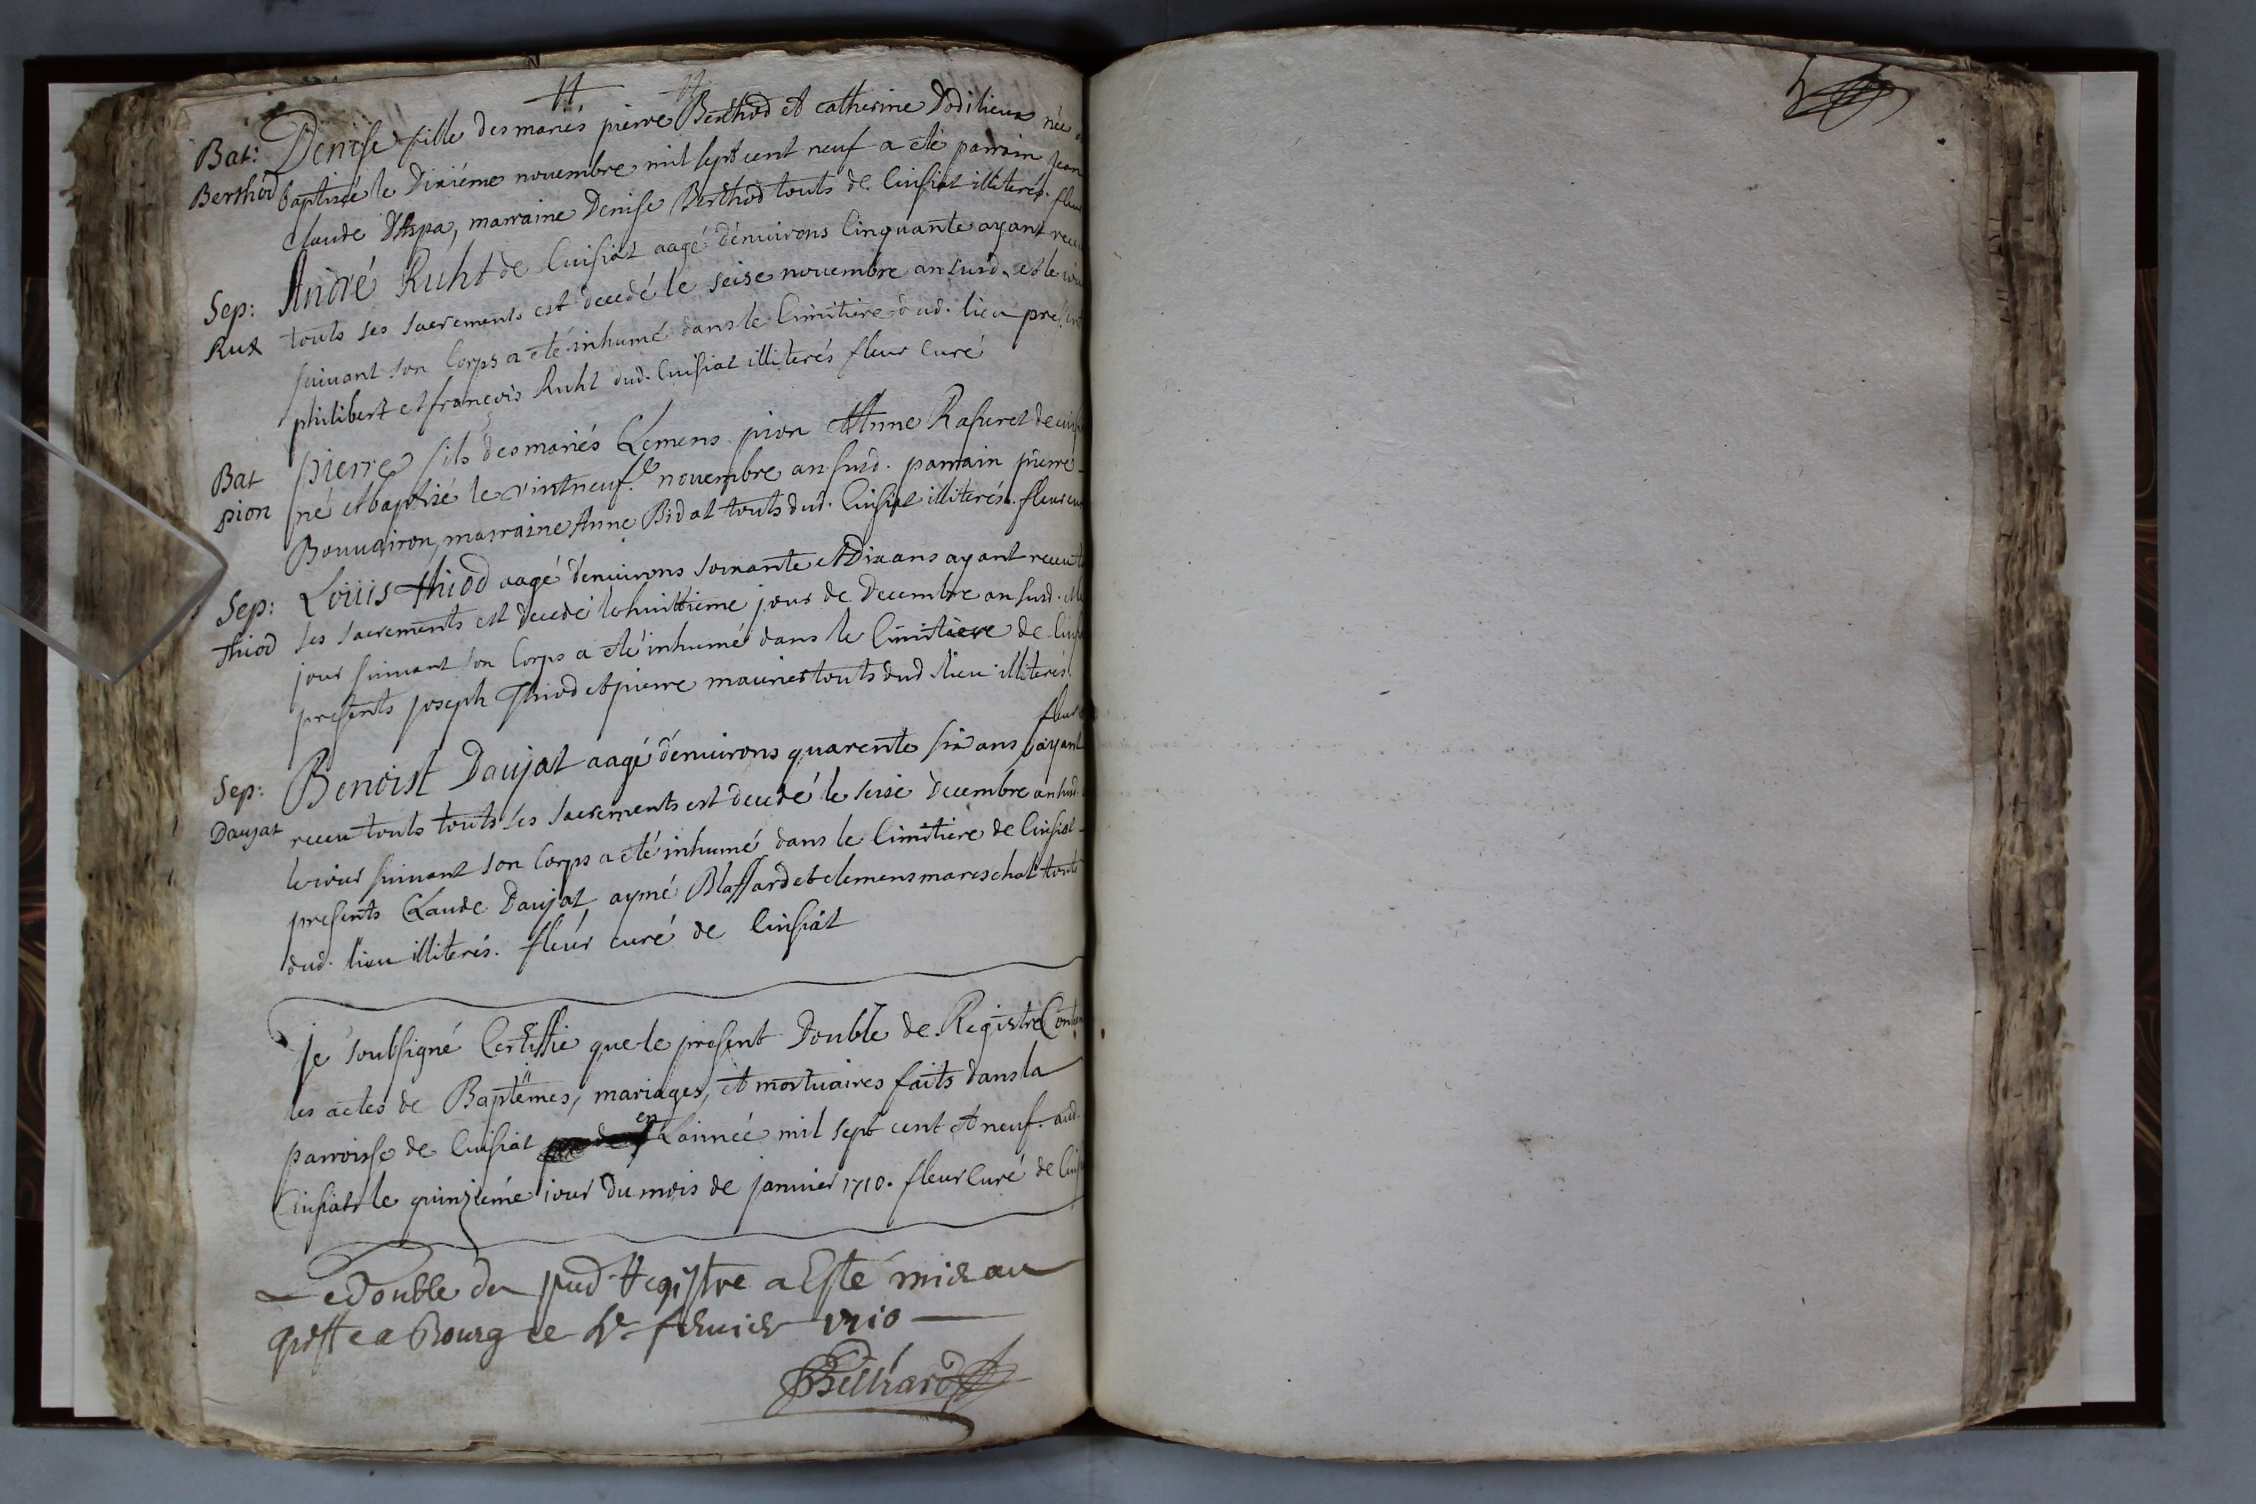 Bat: Denise fille des mariés pierre Berthod et catherine Dodilieux née
Berthod baptisée le Dixiéme novembre mil sept cent neuf a eté parrain Jean
Claude D'Aspa, marraine Denise Berthod touts de Cuisiat illiterés. fleur
Sep: André Ruht de Cuisiat aagé d'environs Cinquante ayant receu
Rux touts ses sacrements est decedé le seise novembre an susd. et le iour
suivant son Corps a eté inhumé dans le Cimitiere dud. lieu present
philibert et françois Ruht dud. Cuisiat illiterés fleur Curé
Bat Pierre fils des mariés Clemens pion et Anne Raseret de cuisiat
pion né et baptisé le vintneuf.e novembre an susd. parrain pierre
Bouvairon, marraine Anne Bidat touts dud. Cuisiat illiterés. fleur curé
Sep: Loüis thiod aagé d'environs soixante et Dix ans ayant receu
thiod ses sacrements est decedé le huittieme jour de Decembre an susd. et le
jour suivant son Corps a eté inhumé dans le Cimitiere de Cuisiat
presents joseph Thiod et pierre mauriet touts dud. lieu illiterés
fleur
Sep: Benoist Daujat aagé d'environs quarente six ans ayant
Daujat receu touts touts ses sacrements est decedé le seise Decembre an susd.
le iour suivant son Corps a eté inhumé dans le Cimitiere de Cuisiat
presents Claude Daujat, aymé Blassard et clemens mareschal touts
dud. lieu illiterés. fleur curé de Cuisiat
je soubsigné Certiffie que le present Double de Registre
les actes de Baptëmes, mariages, et mortuaires faits dans la
parroisse de Cuisiat en L'année mil sept cent et neuf. aud.
Cuisiat le quinziéme iour du mois de janvier 1710. fleur Curé de
Le Double du susd Registre a Esté mis au
greffe a Bourg ce fevrier 1710